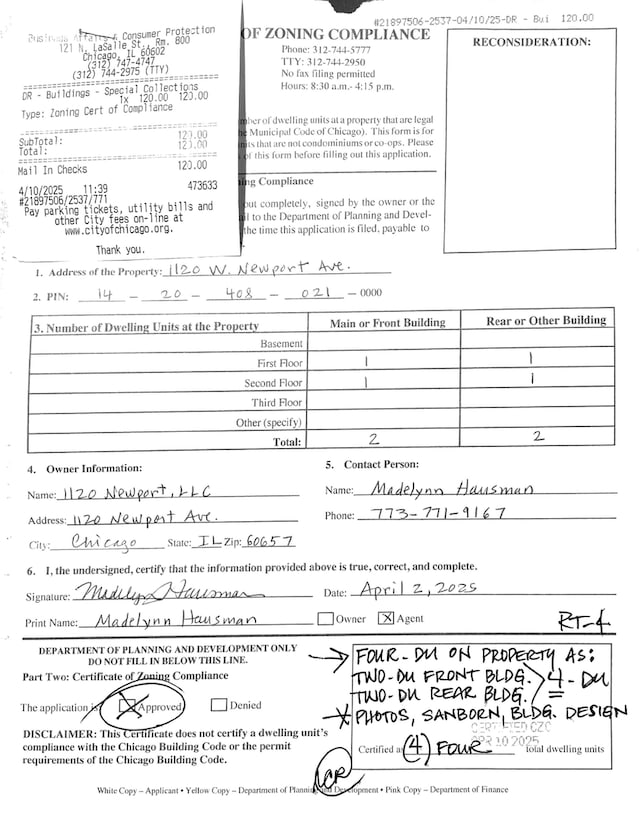 #21897506-2537-04/10/25-DR - Bui 120.00
Business Affairs & Consumer Protection
121 N. LaSalle St., Rm. 800
Chicago, IL 60602
(312) 747-4747
(312) 744-2975 (TTY)
DR - Buildings - Special Collections
1x 120.00 120.00
Type: Zoning Cert of Compliance
SubTotal: 120.00
Total: 120.00
Mail In Checks 120.00
4/10/2025 11:39 473633
#21897506/2537/771
Pay parking tickets, utility bills and
other City fees on-line at
www.cityofchicago.org.
Thank you.
OF ZONING COMPLIANCE
Phone: 312-744-5777
TTY: 312-744-2950
No fax filing permitted
Hours: 8:30 a.m.- 4:15 p.m.
RECONSIDERATION:
of dwelling units at a property that are legal
Municipal Code of Chicago). This form is for
that are not condominiums or co-ops. Please
of this form before filling out this application.
Compliance
out completely, signed by the owner or the
to the Department of Planning and Devel-
the time this application is filed, payable to
1. Address of the Property: 1120 W. Newport Ave.
2. PIN: 14 – 20 – 408 – 021 – 0000
3. Number of Dwelling Units at the Property Main or Front Building Rear or Other Building
Basement
First Floor 1 1
Second Floor 1 1
Third Floor
Other (specify)
Total: 2 2
4. Owner Information:
Name: 1120 Newport, LLC
Address: 1120 Newport Ave.
City: Chicago State: IL Zip: 60657
5. Contact Person:
Name: Madelynn Hausman
Phone: 773-771-9167
6. I, the undersigned, certify that the information provided above is true, correct, and complete.
Signature: Madelynn Hausman Date: April 2, 2025
Print Name: Madelynn Hausman Owner X Agent
RT-4
DEPARTMENT OF PLANNING AND DEVELOPMENT ONLY
DO NOT FILL IN BELOW THIS LINE.
Part Two: Certificate of Zoning Compliance
The application is X Approved Denied
DISCLAIMER: This Certificate does not certify a dwelling unit's
compliance with the Chicago Building Code or the permit
requirements of the Chicago Building Code.
FOUR-DU ON PROPERTY AS:
TWO-DU FRONT BLDG. 4-DU
TWO-DU REAR BLDG. =
PHOTOS, SANBORN, BLDG. DESIGN
CERTIFIED CZC
APR 10 2025
Certified as (4) FOUR total dwelling units
CR
White Copy – Applicant • Yellow Copy – Department of Planning and Development • Pink Copy – Department of Finance